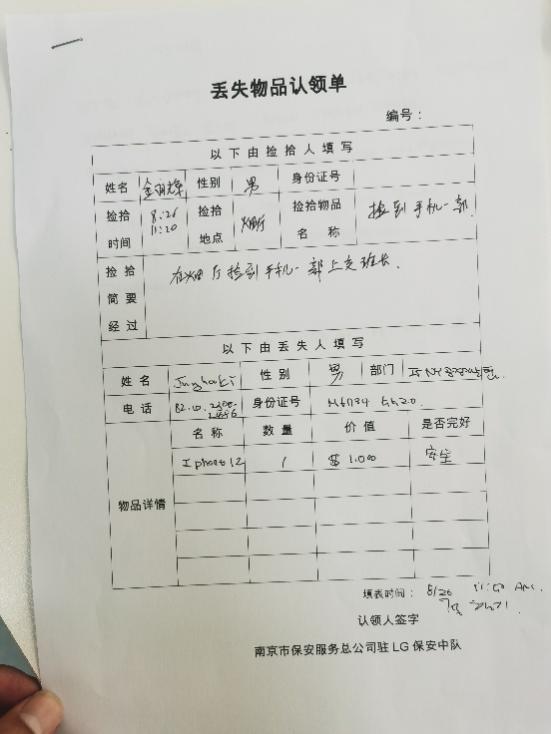 丢失物品认领单
编号：
以下由捡拾人填写
姓名 性别 男 身份证号
捡拾时间 8.26 11:20 捡拾地点 捡拾物品名称 捡到手机一部
捡拾简要经过 捡到手机一部上交班长.
以下由丢失人填写
姓名 性别 男 部门
电话 身份证号
物品详情 名称 数量 价值 是否完好
Iphone 12 1 $ 1.000
填表时间： 8/26
认领人签字
南京市保安服务总公司驻 LG 保安中队